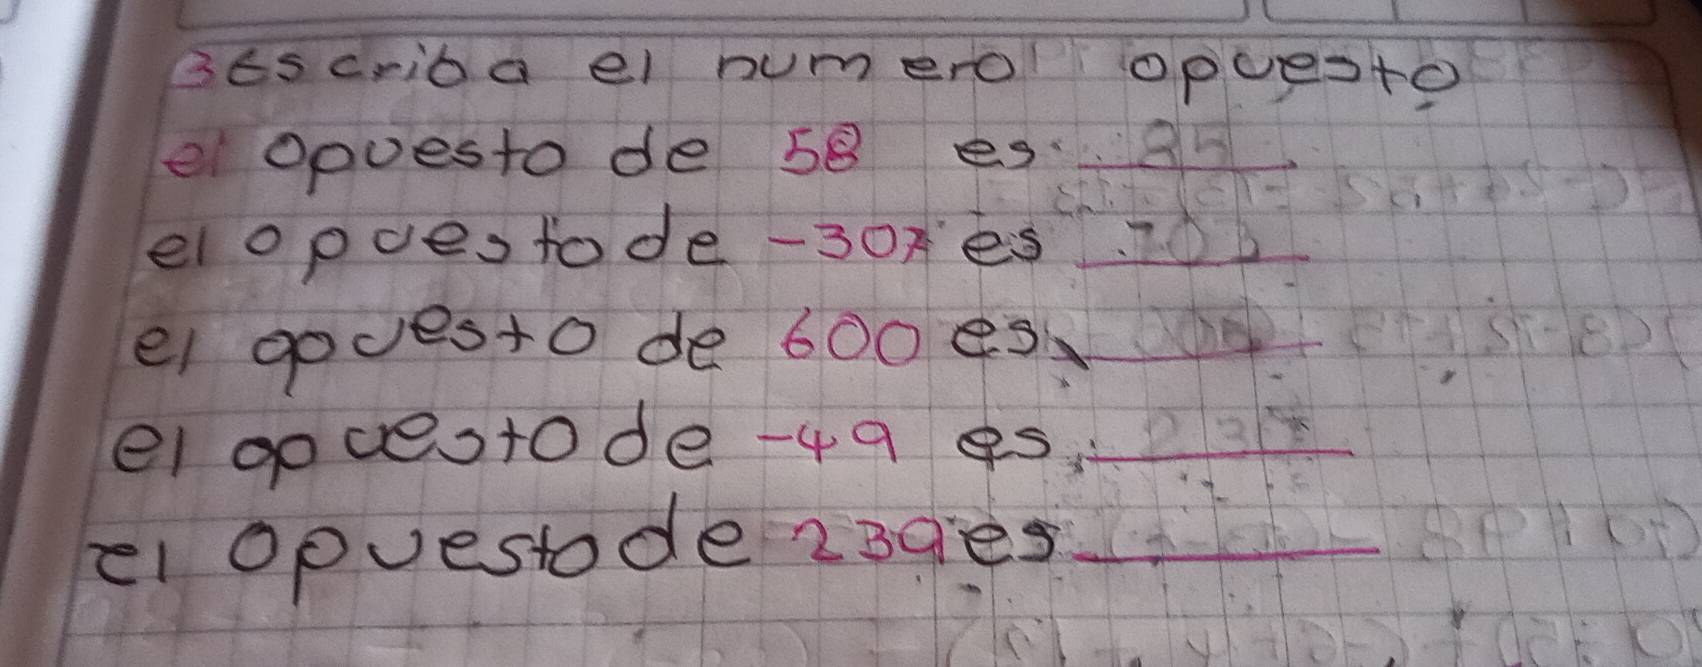 3 Escriba el numero opuesto
el opuesto de 58 es 85
el opuesto de -307 es 703
el opuesto de 600 es
el opuesto de -49 es
el opuesto de 239 es